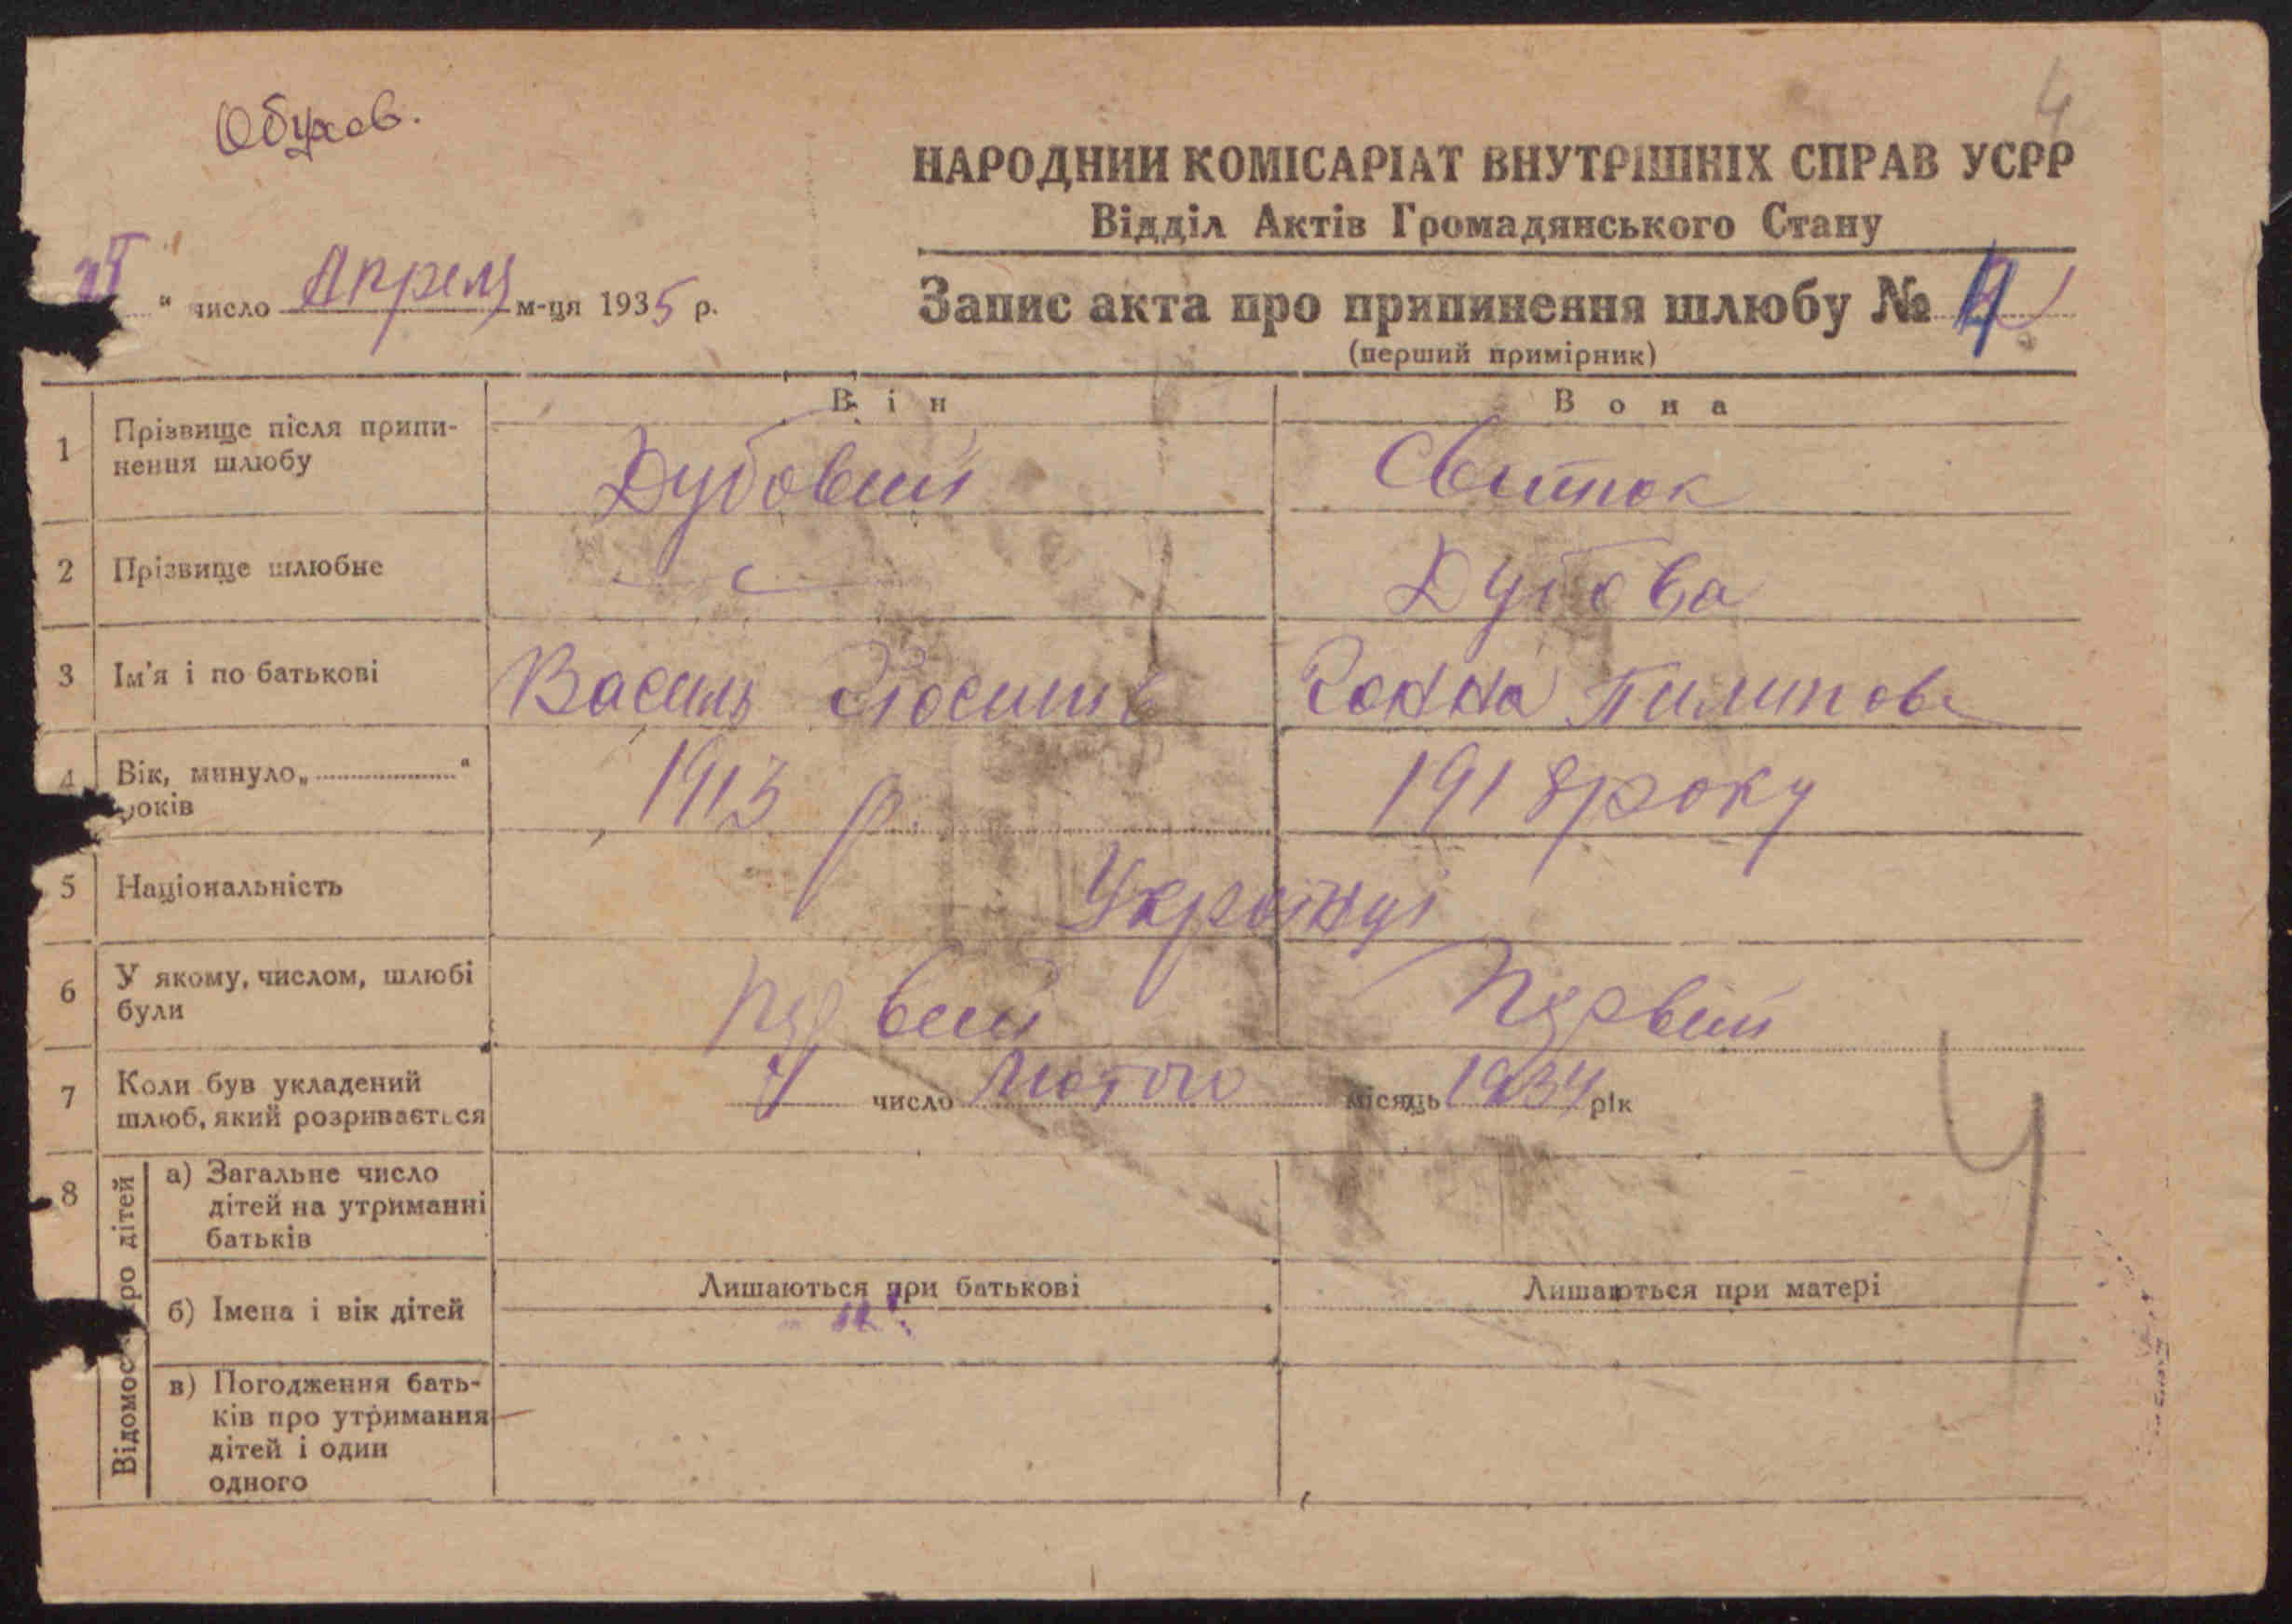 Обухов.
4
НАРОДНИЙ КОМІСАРІАТ ВНУТРІШНІХ СПРАВ УСРР
Відділ Актів Громадянського Стану
“ число Апреля м-ця 1935 р.
Запис акта про припинення шлюбу № 4
(перший примірник)
Він Вона
1 Прізвище після припи-
нення шлюбу
Дубовий Свиток
2 Прізвище шлюбне Дубова
3 Ім'я і по батькові Василь Йосипів Ганна Пилипова
4 Вік, минуло „ “
років
1913 р. 1918 року
5 Національність Українці
6 У якому, числом, шлюбі
були
первий первий
7 Коли був укладений
шлюб, який розривається
число Лютого місяць 1934 рік
4
8 Відомості про дітей
а) Загальне число
дітей на утриманні
батьків
б) Імена і вік дітей
Лишаються при батькові Лишаються при матері
в) Погодження бать-
ків про утримання
дітей і один
одного